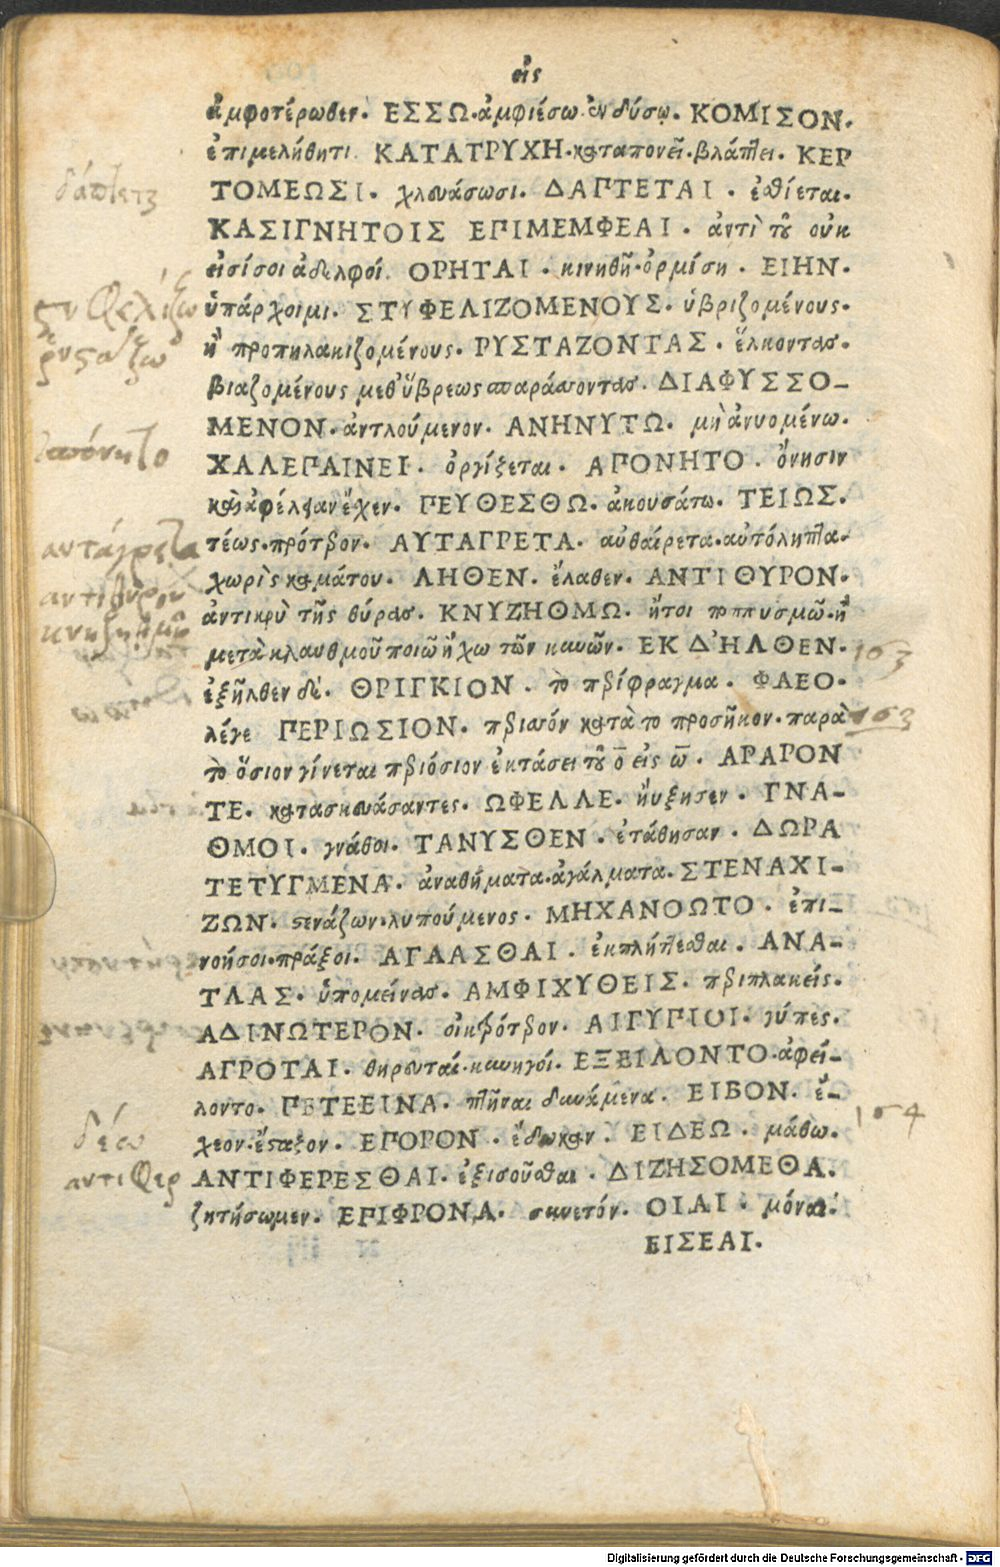 εἰς
ἀμφοτέρωθεν. ΕΣΣΩ. ἀμφιέσω. ἐνδύσω. ΚΟΜΙΣΟΝ.
ἐπιμελήθητι. ΚΑΤΑΤΡΥΧΗ. καταπονεῖ. βλάπτει. ΚΕΡ
ΤΟΜΕΩΣΙ. χλευάσωσι. ΔΑΠΤΕΤΑΙ. ἐσθίεται.
ΚΑΣΙΓΝΗΤΟΙΣ ΕΠΙΜΕΜΦΕΑΙ. ἀντὶ τοῦ οὐκ
εἰσί σοι ἀδελφοί. ΟΡΗΤΑΙ. κινηθῆ. ὁρμίση. ΕΙΗΝ.
ὑπάρχοιμι. ΣΤΥΦΕΛΙΖΟΜΕΝΟΥΣ. ὑβριζομένους.
ἢ προπηλακιζομένους. ΡΥΣΤΑΖΟΝΤΑΣ. ἕλκοντας.
βιαζομένους μεθ' ὕβρεως σπαράσσοντας. ΔΙΑΦΥΣΣΟ-
ΜΕΝΟΝ. ἀντλούμενον. ΑΝΗΝΥΤΩ. μὴ ἀνυομένω.
ΧΑΛΕΠΑΙΝΕΙ. ὀργίζεται. ΑΠΟΝΗΤΟ. ὄνησιν
καὶ ὠφέλειαν ἔσχεν. ΠΕΥΘΕΣΘΩ. ἀκουσάτω. ΤΕΙΩΣ.
τέως. πρότερον. ΑΥΤΑΓΡΕΤΑ. αὐθαίρετα. αὐτόληπτα.
χωρὶς καμάτου. ΛΗΘΕΝ. ἔλαθεν. ΑΝΤΙΘΥΡΟΝ.
ἀντικρὺ τῆς θύρας. ΚΝΥΖΗΘΜΩ. ἤτοι ποππυσμῶ. ἢ
μετὰ κλαυθμοῦ ποιῶ ἤχω τῶν κυνῶν. ΕΚ Δ'ΗΛΘΕΝ.
ἐξῆλθεν δέ. ΘΡΙΓΚΙΟΝ. τὸ περίφραγμα. ΦΑΕΟ.
λέγε ΠΕΡΙΩΣΙΟΝ. περισσόν κατὰ το προσῆκον. παρὰ
τὸ ὅσιον γίνεται περιόσιον ἐκτάσει τοῦ ο εἰς ω. ΑΡΑΡΟΝ
ΤΕ. κατασκευάσαντες. ΩΦΕΛΛΕ. ηὔξησεν. ΓΝΑ-
ΘΜΟΙ. γνάθοι. ΤΑΝΥΣΘΕΝ. ἐτάθησαν. ΔΩΡΑ
ΤΕΤΥΓΜΕΝΑ. ἀναθήματα. ἀγάλματα. ΣΤΕΝΑΧΙ-
ΖΩΝ. στενάζων. λυπούμενος. ΜΗΧΑΝΟΩΤΟ. ἐπι-
νοήσοι. πράξοι. ΑΓΑΑΣΘΑΙ. ἐκπλήττεσθαι. ΑΝΑ-
ΤΛΑΣ. ὑπομείνας. ΑΜΦΙΧΥΘΕΙΣ. περιπλακείς.
ΑΔΙΝΩΤΕΡΟΝ. οἰκτρότερον. ΑΙΓΥΠΙΟΙ. γύπες.
ΑΓΡΟΤΑΙ. θηρευταί. κυνηγοί. ΕΞΕΙΛΟΝΤΟ. ἀφεί-
λοντο. ΠΕΤΕΕΙΝΑ. πτῆναι δυνάμενα. ΕΙΒΟΝ. ἔ-
χεον. ἔσταζον. ΕΠΟΡΟΝ. ἔδωκαν. ΕΙΔΕΩ. μάθω.
ΑΝΤΙΦΕΡΕΣΘΑΙ. ἐξισοῦσθαι. ΔΙΖΗΣΟΜΕΘΑ.
ζητήσωμεν. ΕΠΙΦΡΟΝΑ. συνετόν. ΟΙΑΙ. μόναι.
ΕΙΣΕΑΙ.
δάπτετ
στυφελίζω
ῥυσταζω
ἀπόνητο
αυτάγρετα
αντιθυρον
κνηζηθμῶ
163
163
164
δέω
αντιφερ
Digitalisierung gefördert durch die Deutsche Forschungsgemeinschaft - DFG